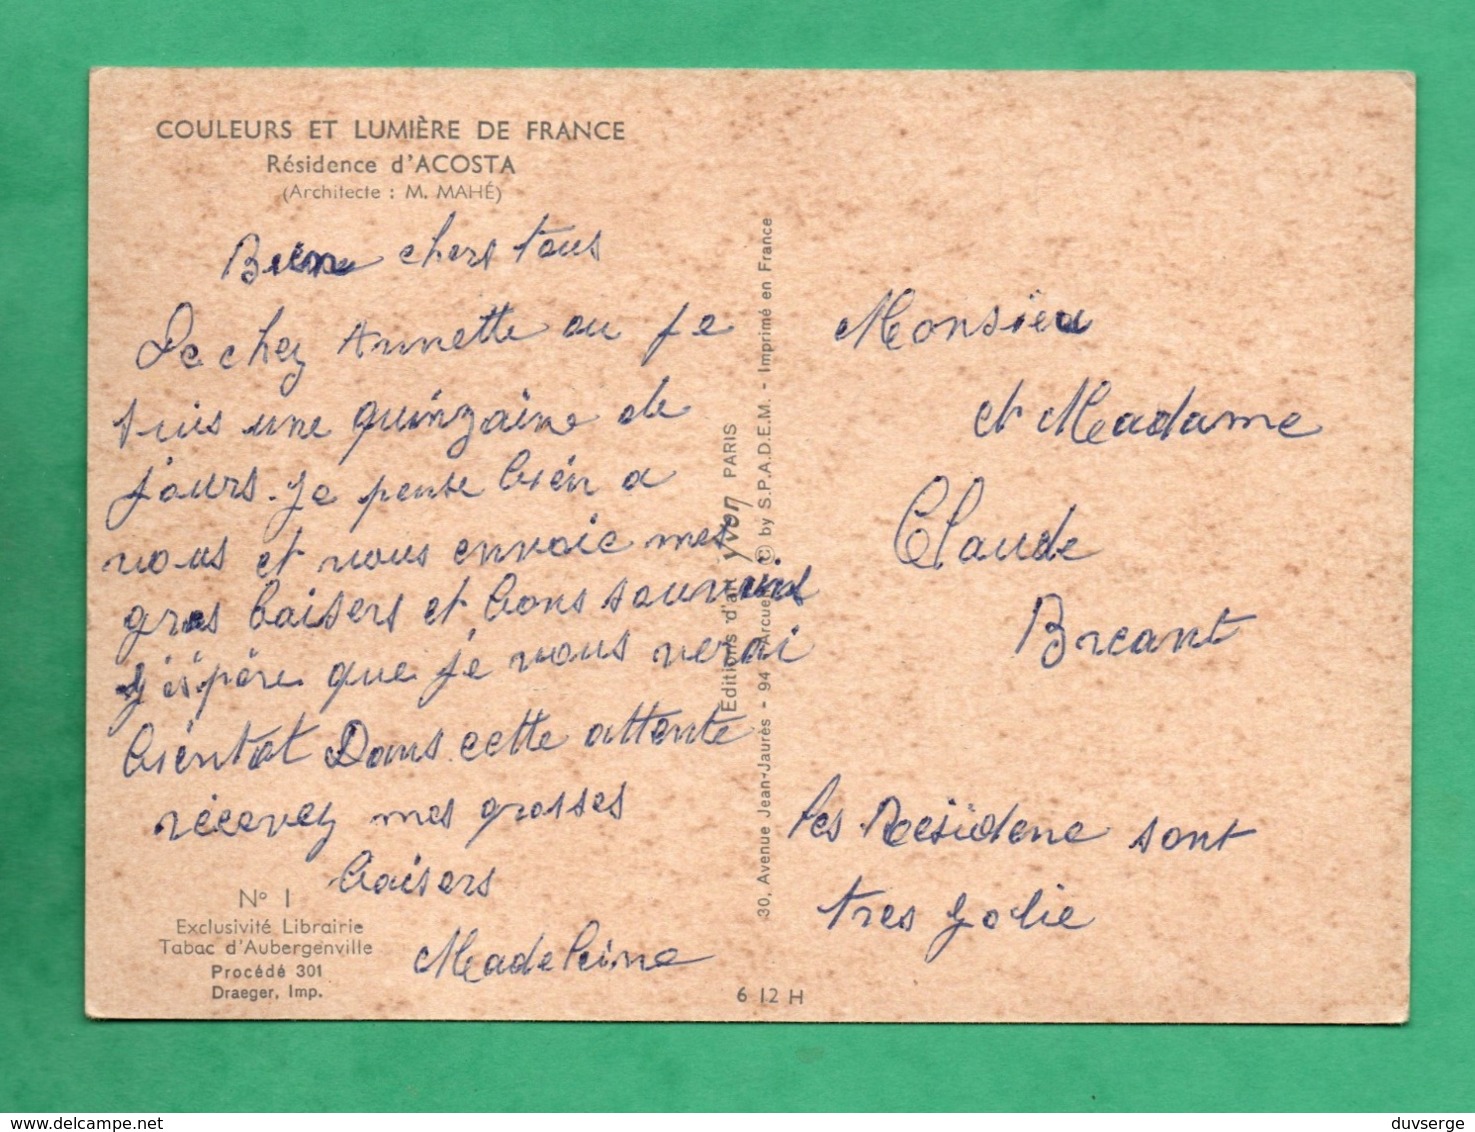 COULEURS ET LUMIÈRE DE FRANCE
Résidence d'ACOSTA
(Architecte : M. MAHÉ)
Bien chers tous
De chez Annette ou je
suis une quinzaine de
jours. Je pense bien a
vous et vous envoie mes
gros baisers et bons souvenirs
J'éspère que je vous verai
bientot Dans cette attente
recevez mes grosses
baisers
Madeleine
N° 1
Exclusivité Librairie
Tabac d'Aubergenville
Procédé 301
Draeger, Imp.
Editions d'art yvon PARIS
30, Avenue Jean-Jaurès - 94 Arcueil © by S.P.A.D.E.M. - Imprimé en France
6 12 H
Monsieu
et Madame
Claude
Breant
les Résidene sont
tres jolie
duvserge